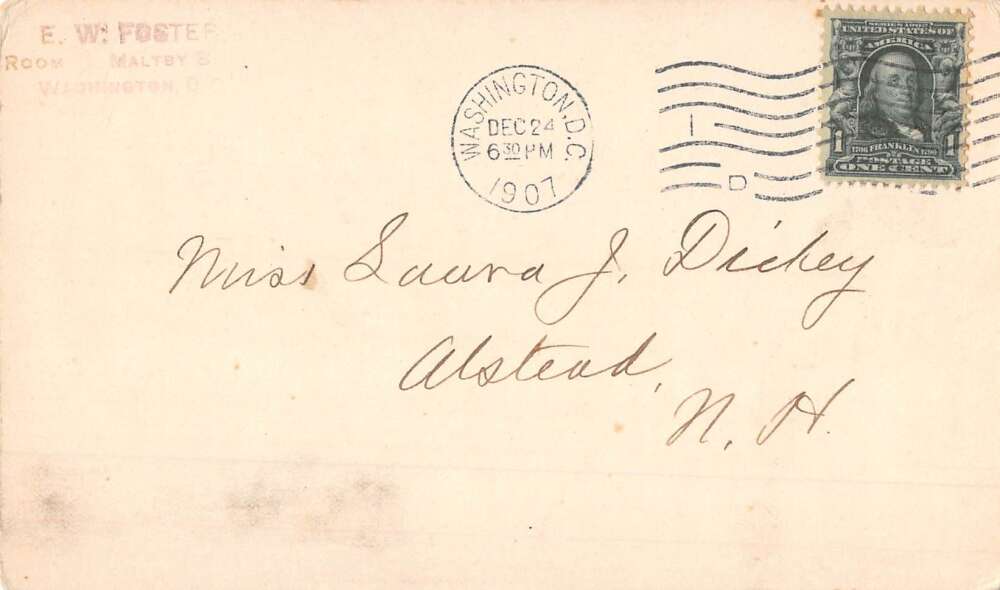 E. W. FOSTER
ROOM MALTBY B
WASHINGTON, D
WASHINGTON, D.C.
DEC 24
6 30 PM
1907
I
D
SERIES 1902
UNITED STATES OF
AMERICA
1 1
1706 FRANKLIN 1790
POSTAGE
ONE CENT
Miss Laura J. Dickey
Alstead,
N. H.